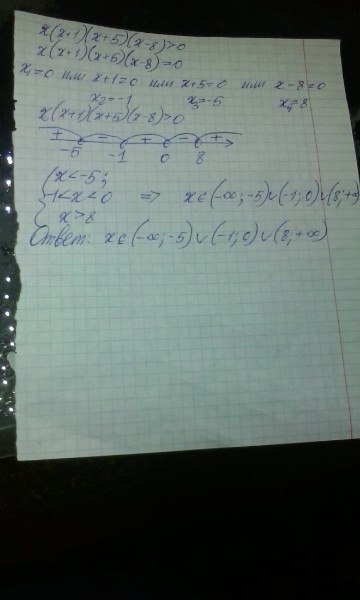 x(x+1)(x+5)(x-8)>0
x(x+1)(x+5)(x-8)=0
x₁=0 или x+1=0 или x+5=0 или x-8=0
x₂=-1 x₃=-5 x₄=8
x(x+1)(x+5)(x-8)>0
+ - + - +
-5 -1 0 8
{x<-5;
-1<x<0 => x∈(-∞;-5)∪(-1;0)∪(8;+∞)
x>8
Ответ: x∈(-∞;-5)∪(-1;0)∪(8;+∞)